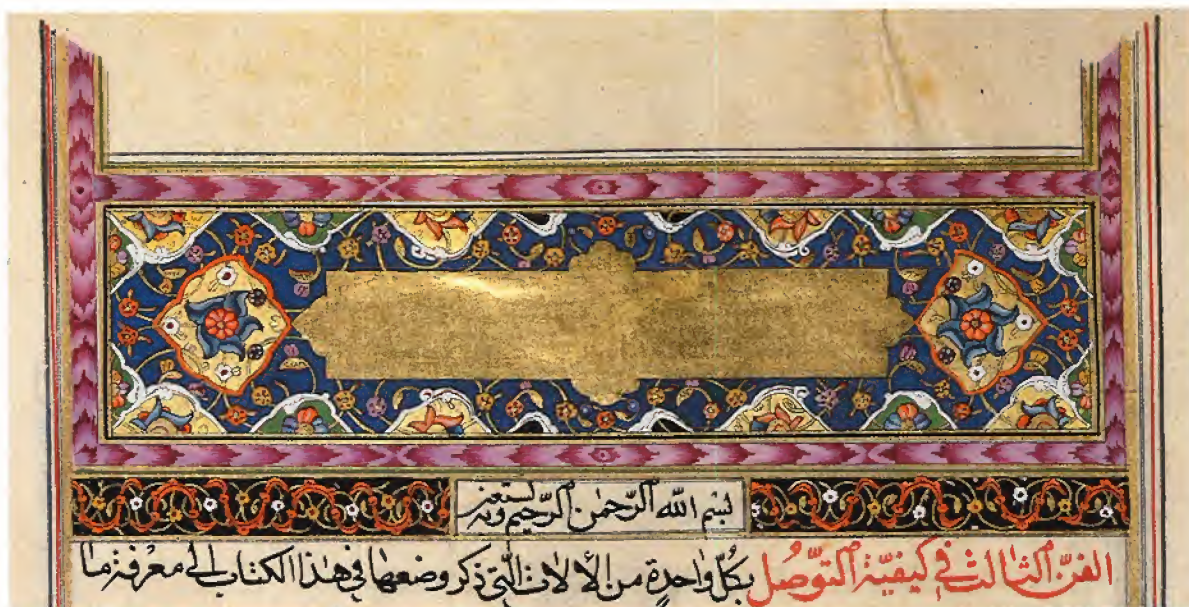 بسم الله الرحمن الرحيم وبه نستعين
الفن الثالث في كيفية التوصل بكل واحدة من الالات التي ذكر وضعها في هذا الكتاب الى معرفة ما